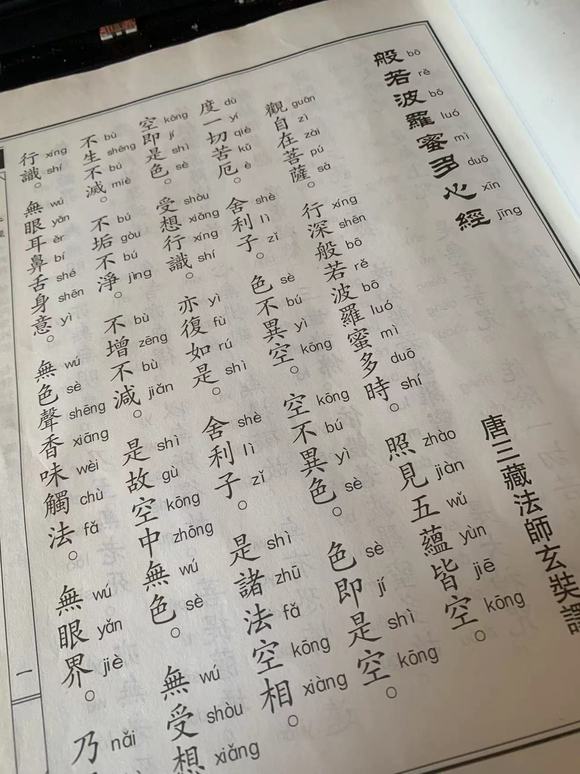 般若波羅蜜多心經
bō rě bō luó mì duō xīn jīng
唐三藏法師玄奘譯
觀自在菩薩。行深般若波羅蜜多時。照見五蘊皆空。
guān zì zài pú sà xíng shēn bō rě bō luó mì duō shí zhào jiàn wǔ yùn jiē kōng
度一切苦厄。舍利子。色不異空。空不異色。色即是空。
dù yí qiè kǔ è shè lì zǐ sè bú yì kōng kōng bú yì sè sè jí shì kōng
空即是色。受想行識。亦復如是。舍利子。是諸法空相。
kōng jí shì sè shòu xiǎng xíng shí yì fù rú shì shè lì zǐ shì zhū fǎ kōng xiàng
不生不滅。不垢不淨。不增不減。是故空中無色。無受想
bù shēng bú miè bú gòu bú jìng bù zēng bù jiǎn shì gù kōng zhōng wú sè wú shòu xiǎng
行識。無眼耳鼻舌身意。無色聲香味觸法。無眼界。乃
xíng shí wú yǎn ěr bí shé shēn yì wú sè shēng xiāng wèi chù fǎ wú yǎn jiè nǎi
一